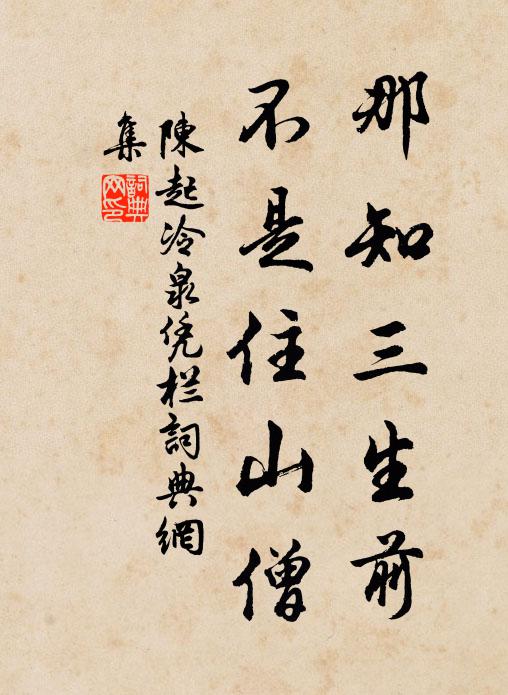 那知三生前
不是住山僧
陳起冷泉凭栏詞典網
集
詞典网印